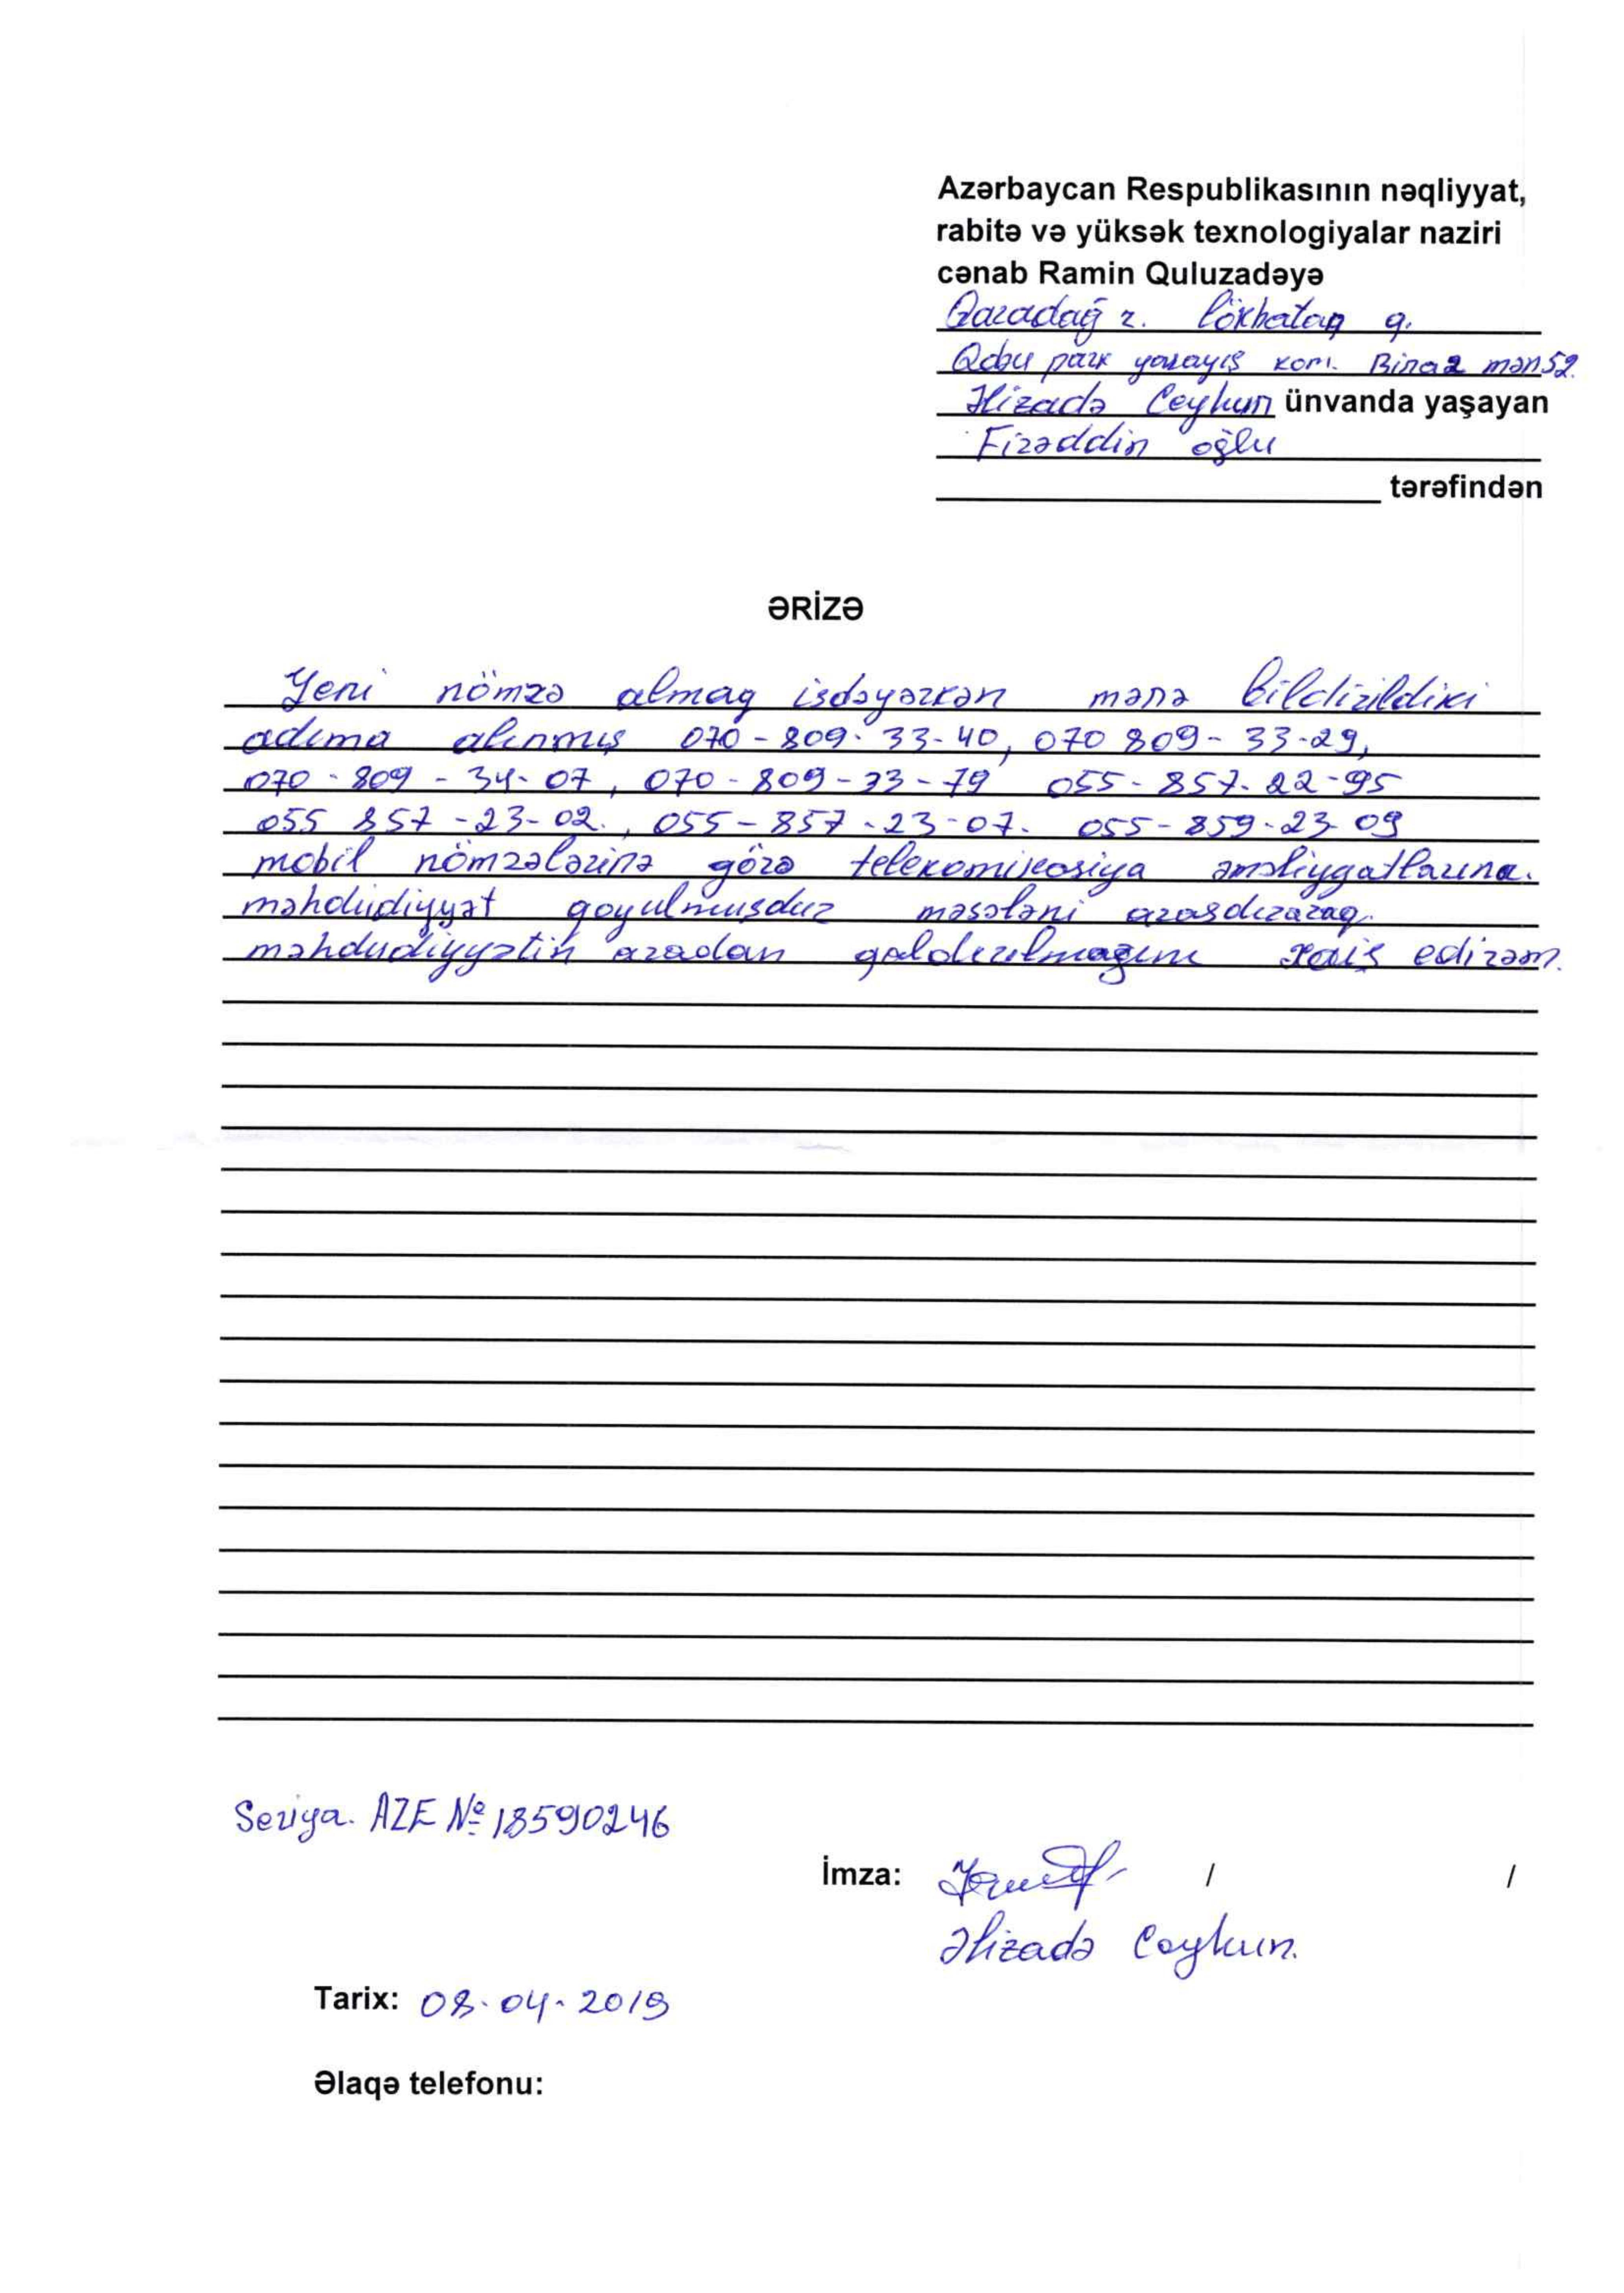 Azərbaycan Respublikasının nəqliyyat,
rabitə və yüksək texnologiyalar naziri
cənab Ramin Quluzadəyə
Qaradağ r. Lökbatan q.
Qobu park yaşayış kom. Bina 2 mən 52.
Əlizadə Ceyhun ünvanda yaşayan
Fizəddin oğlu
tərəfindən
ƏRİZƏ
Yeni nömrə almag isdəyərkən mənə bildirildiki
adıma alınmış 070-809-33-40, 070 809-33-29,
070-809-34-07, 070-809-33-79 055-857-22-95
055 857-23-02., 055-857-23-07. 055-859-23-09
mobil nömrələrinə görə əməliyyatlarına.
məhdudiyyət qoyulmuşdur məsələni araşdıraraq.
məhdudiyyətin aradan galdırılmağını xaiş edirəm.
Seriya. AZE № 18590246
İmza: / /
Əlizadə Ceyhun.
Tarix: 08.04.2019
Əlaqə telefonu: